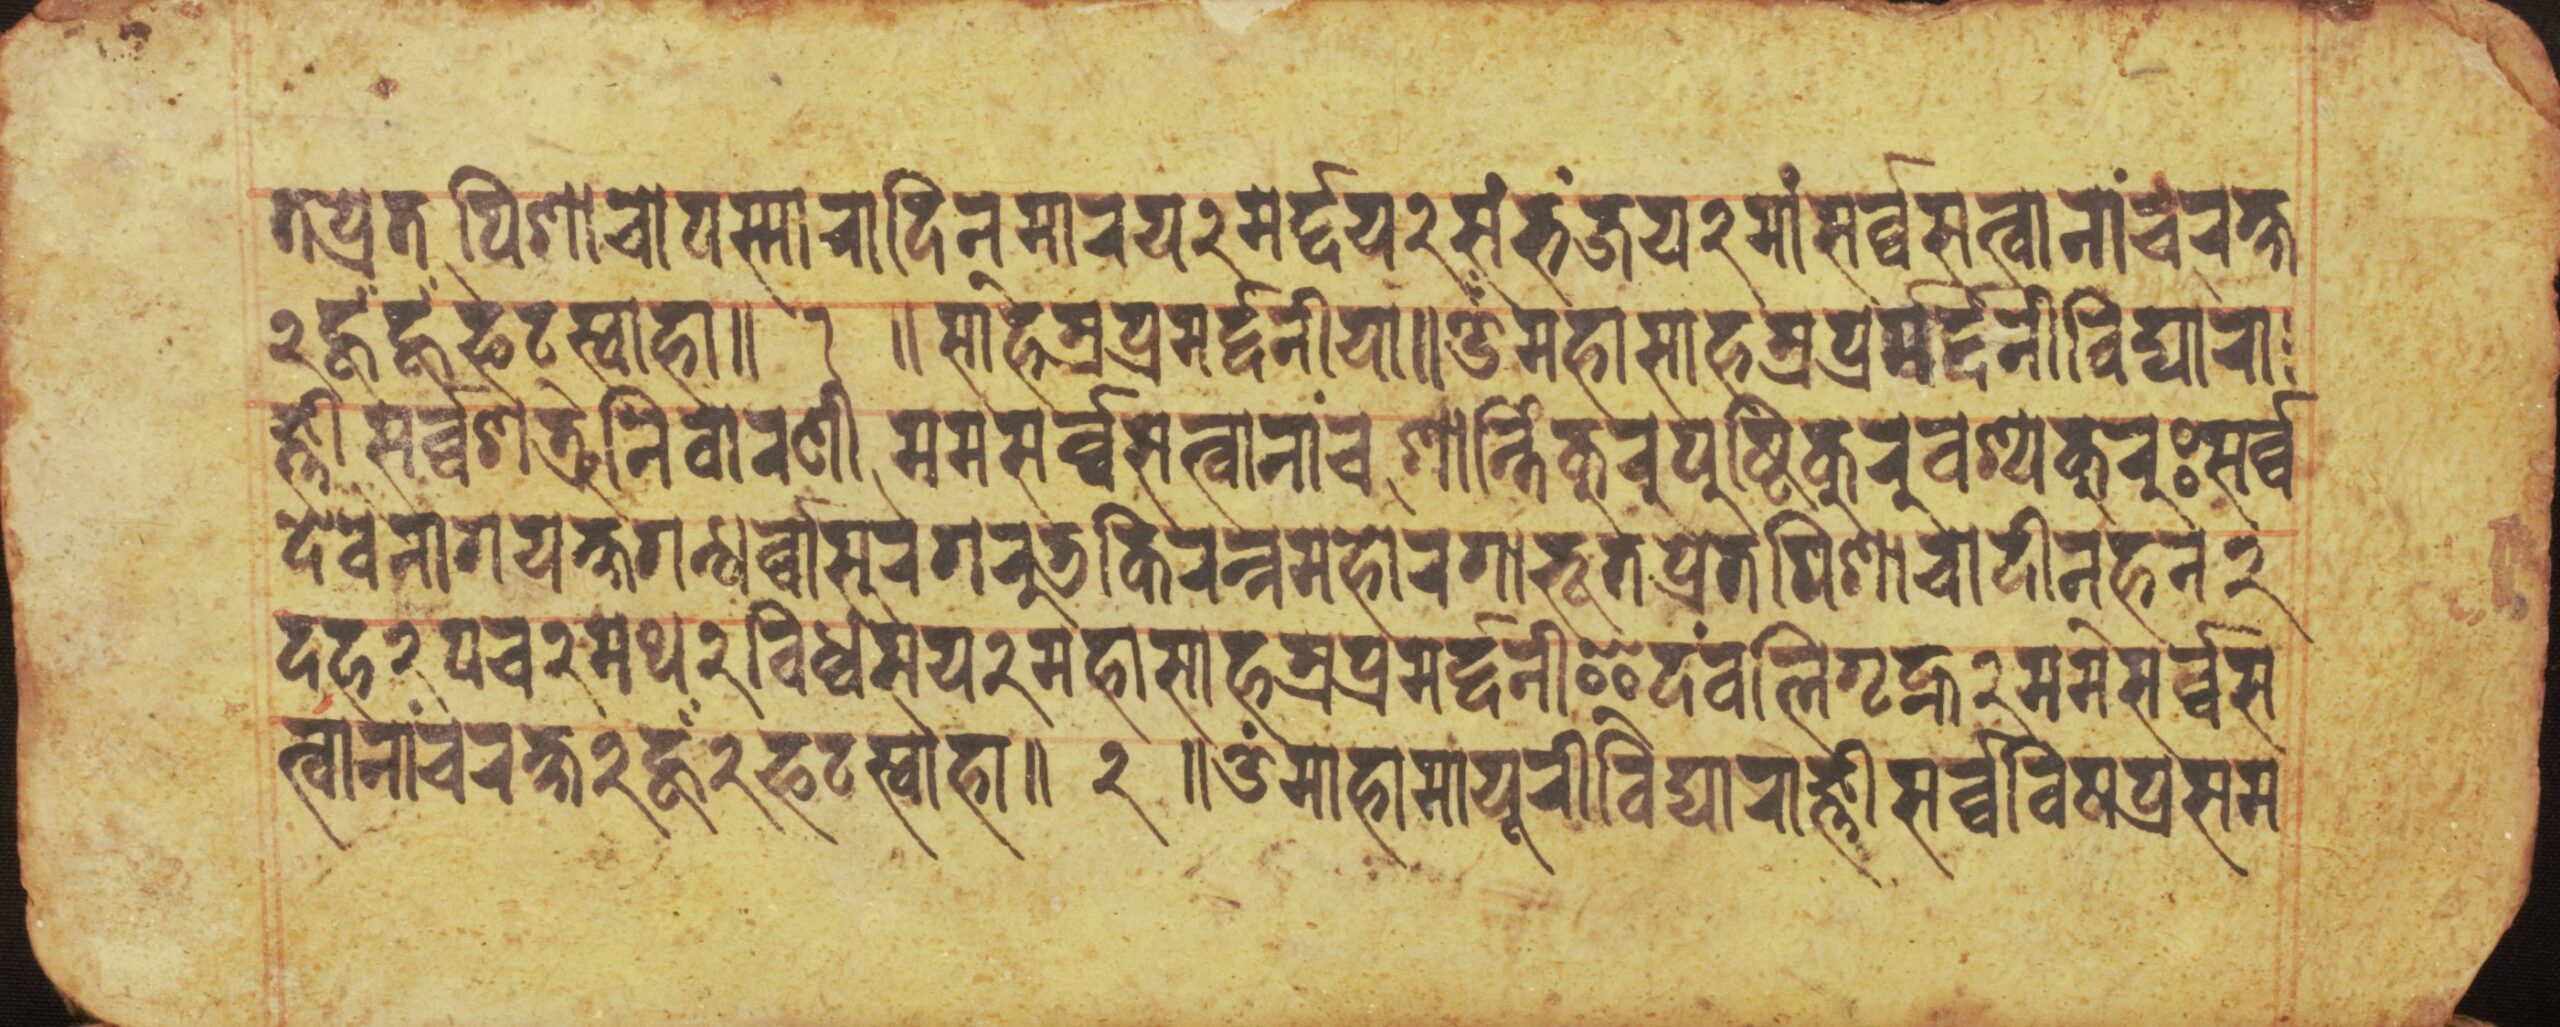 तप्रेत पिशाचोपस्मारादिन मारय२मर्द्दय२संभंजय२मांसर्व्वसत्वानांचरक्ष
२हूंहूंफटस्वाहा॥ १ ॥साहस्रप्रमर्द्दनीया॥ॐमहासाहस्रप्रमर्द्दनीविद्यारा
ज्ञी सर्व्वशत्रुनिवारणी ममसर्व्वसत्वानांच शान्तिंकुरुपुष्टिकुरुवश्यकुरुःसर्व्व
देवनागयक्षगन्धर्व्वासुरगरुडकिरन्नमहोरगाभूतप्रेतपिशाचादीनहन२
दह२पच२मथ२विध्वंसय२महासाहस्रप्रमर्द्दनीइदंबलिंगृह्न२ममसर्व्वस
त्वानांचरक्ष२हूं२फटस्वाहा॥ २ ॥ॐमाहामायूरीविद्याराज्ञीसर्व्वविषप्रसम